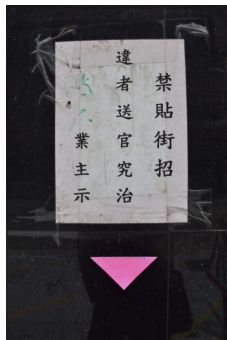 禁貼街招
違者送官究治
業主示